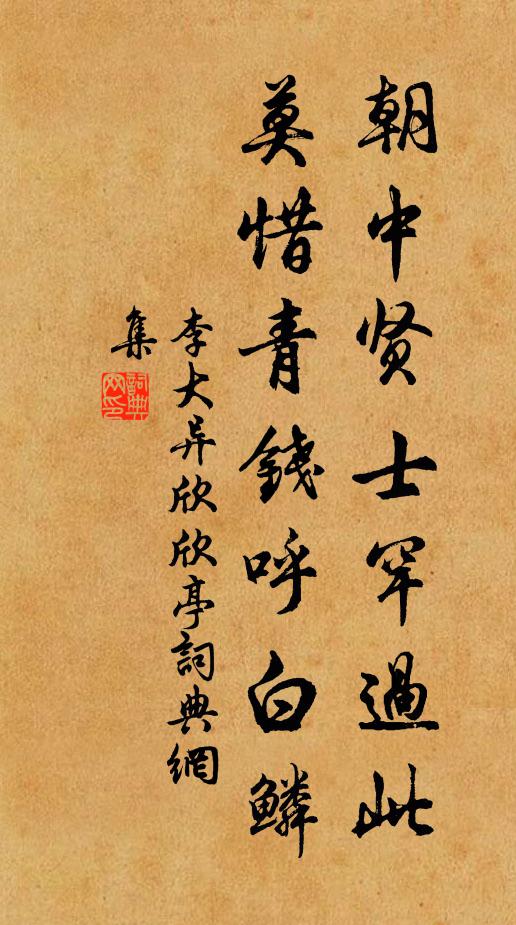 朝中贤士罕過此
莫惜青錢呼白鱗
李大异欣欣亭詞典網
集
詞典
网印